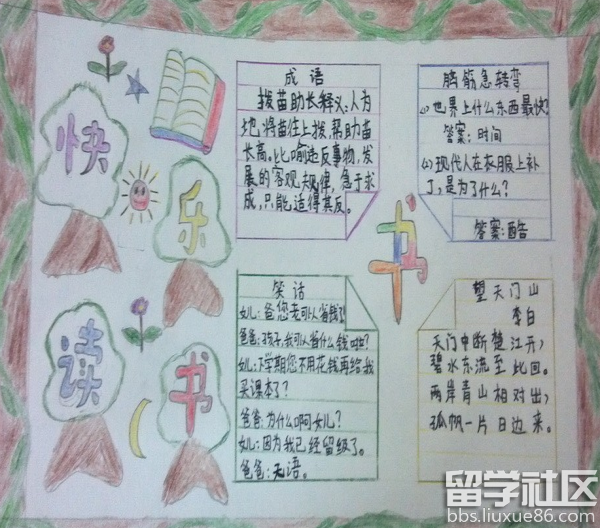 快
乐
读
书
成语
拨苗助长释义:人为
地将苗往上拨,帮助苗
长高。比喻违反事物,发
展的客观规律,急于求
成,只能适得其反。
脑筋急转弯
(1)世界上什么东西最快?
答案:时间
(2)现代人在衣服上补
丁,是为了什么?
答案:酷
书
笑话
女儿:爸您老可以省钱了
爸爸:孩子,我可以省什么钱啦?
女儿:下学期您不用花钱再给我
买课本了?
爸爸:为什么啊女儿?
女儿:因为我已经留级了。
爸爸:无语。
望天门山
李白
天门中断楚江开,
碧水东流至此回。
两岸青山相对出,
孤帆一片日边来。
留学社区
bbs.liuxue86.com